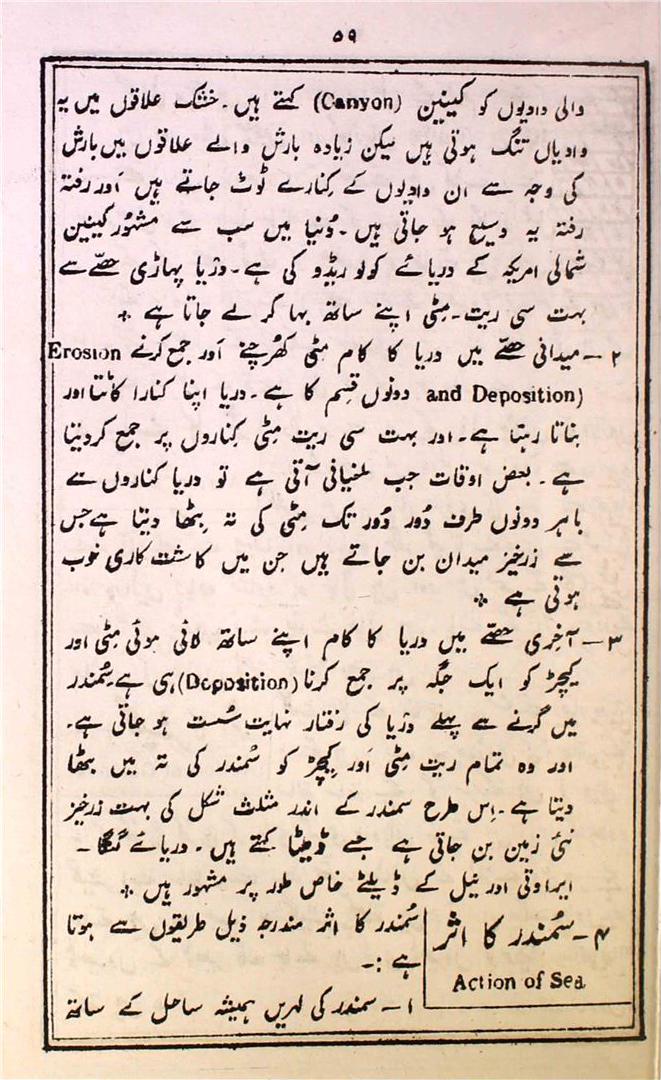 ۵۹
والی وادیوں کو کینین (Canyon) کہتے ہیں۔ خشک علاقوں میں یہ
وادیاں تنگ ہوتی ہیں لیکن زیادہ بارش والے علاقوں میں بارش
کی وجہ سے ان وادیوں کے کِنارے ٹوٹ جاتے ہیں اَور رفتہ
رفتہ یہ وسیع ہو جاتی ہیں۔ دُنیا میں سب سے مشہُور کینین
شمالی امریکہ کے دریائے کولوریڈو کی ہے۔ دریا پہاڑی حِصّے سے
بہت سی ریت۔ مِٹی اپنے ساتھ بہا کر لے جاتا ہے ٭
۲ – میدانی حصّے میں دریا کا کام مٹی کھُرچنے اَور جمع کرنے Erosion
and Deposition) دونوں قِسم کا ہے۔ دریا اپنا کنارا کاٹتا اور
بناتا رہتا ہے۔ اور بہت سی ریت مِٹی کِناروں پر جمع کر دیتا
ہے۔ بعض اوقات جب طغیانی آتی ہے تو دریا کناروں سے
باہر دونوں طرف دُور دُور تک مِٹی کی تہ بِٹھا دیتا ہے جس
سے زرخیز میدان بن جاتے ہیں جن میں کاشت کاری خوب
ہوتی ہے ٭
۳ – آخِری حصّے میں دریا کا کام اپنے ساتھ لائی ہوئی مِٹی اور
کیچڑ کو ایک جگہ پر جمع کرنا (Deposition) ہی ہے۔ سُمندر
میں گرنے سے پہلے دریا کی رفتار نہایت سُست ہو جاتی ہے۔
اور وہ تمام ریت مِٹی اَور کیچڑ کو سُمندر کی تہ میں بٹھا
دیتا ہے۔ اِس طرح سمندر کے اندر مثلث شکل کی بہت زرخیز
نئی زمین بن جاتی ہے جسے ڈیلٹا کہتے ہیں۔ دریائے گنگا۔
ایراوتی اور نیل کے ڈیلٹے خاص طور پر مشہور ہیں ٭
۴ – سُمندر کا اثر
Action of Sea
سُمندر کا اثر مندرجہ ذیل طریقوں سے ہوتا
ہے :۔
۱ – سمندر کی لہریں ہمیشہ ساحل کے ساتھ